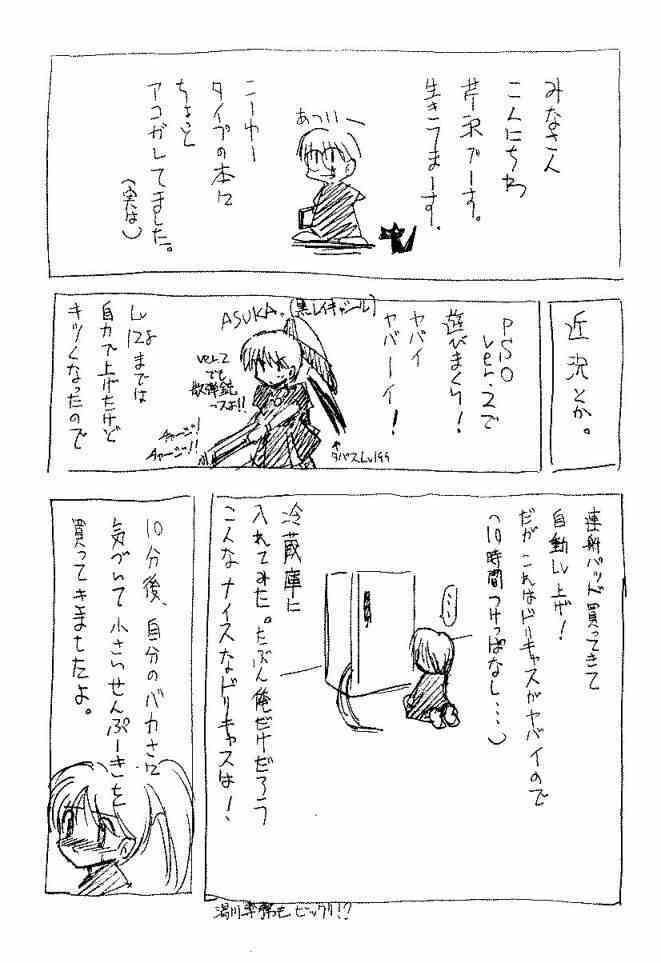 みなさん
こんにちわ
芹沢でーす。
生きてまーす。
あつい〜
こーゆー
タイプの本に
ちょっと
アコガレてました。
(実は)
近況とか。
PSO
ver.2で
遊びまくり!
ヤバイ
ヤバーイ!
ASUKA。(黒レイキャシール)
ver.2
でも
散弾銃
っスよ!!
チャージ!
チャージ!!
Lv
128までは
自力で上げたけど
キツくなったので
連射パッド買ってきて
自動Lv上げ!
だがこれはドリキャスがヤバイので
(10時間つけっぱなし…)
……
冷蔵庫に
入れてみた。たぶん俺だけだろう
こんなナイスなドリキャスは!
湯川専務もビックリ!?
10分後、自分のバカさに
気づいて小さいせんぷーきを
買ってきましたよ。